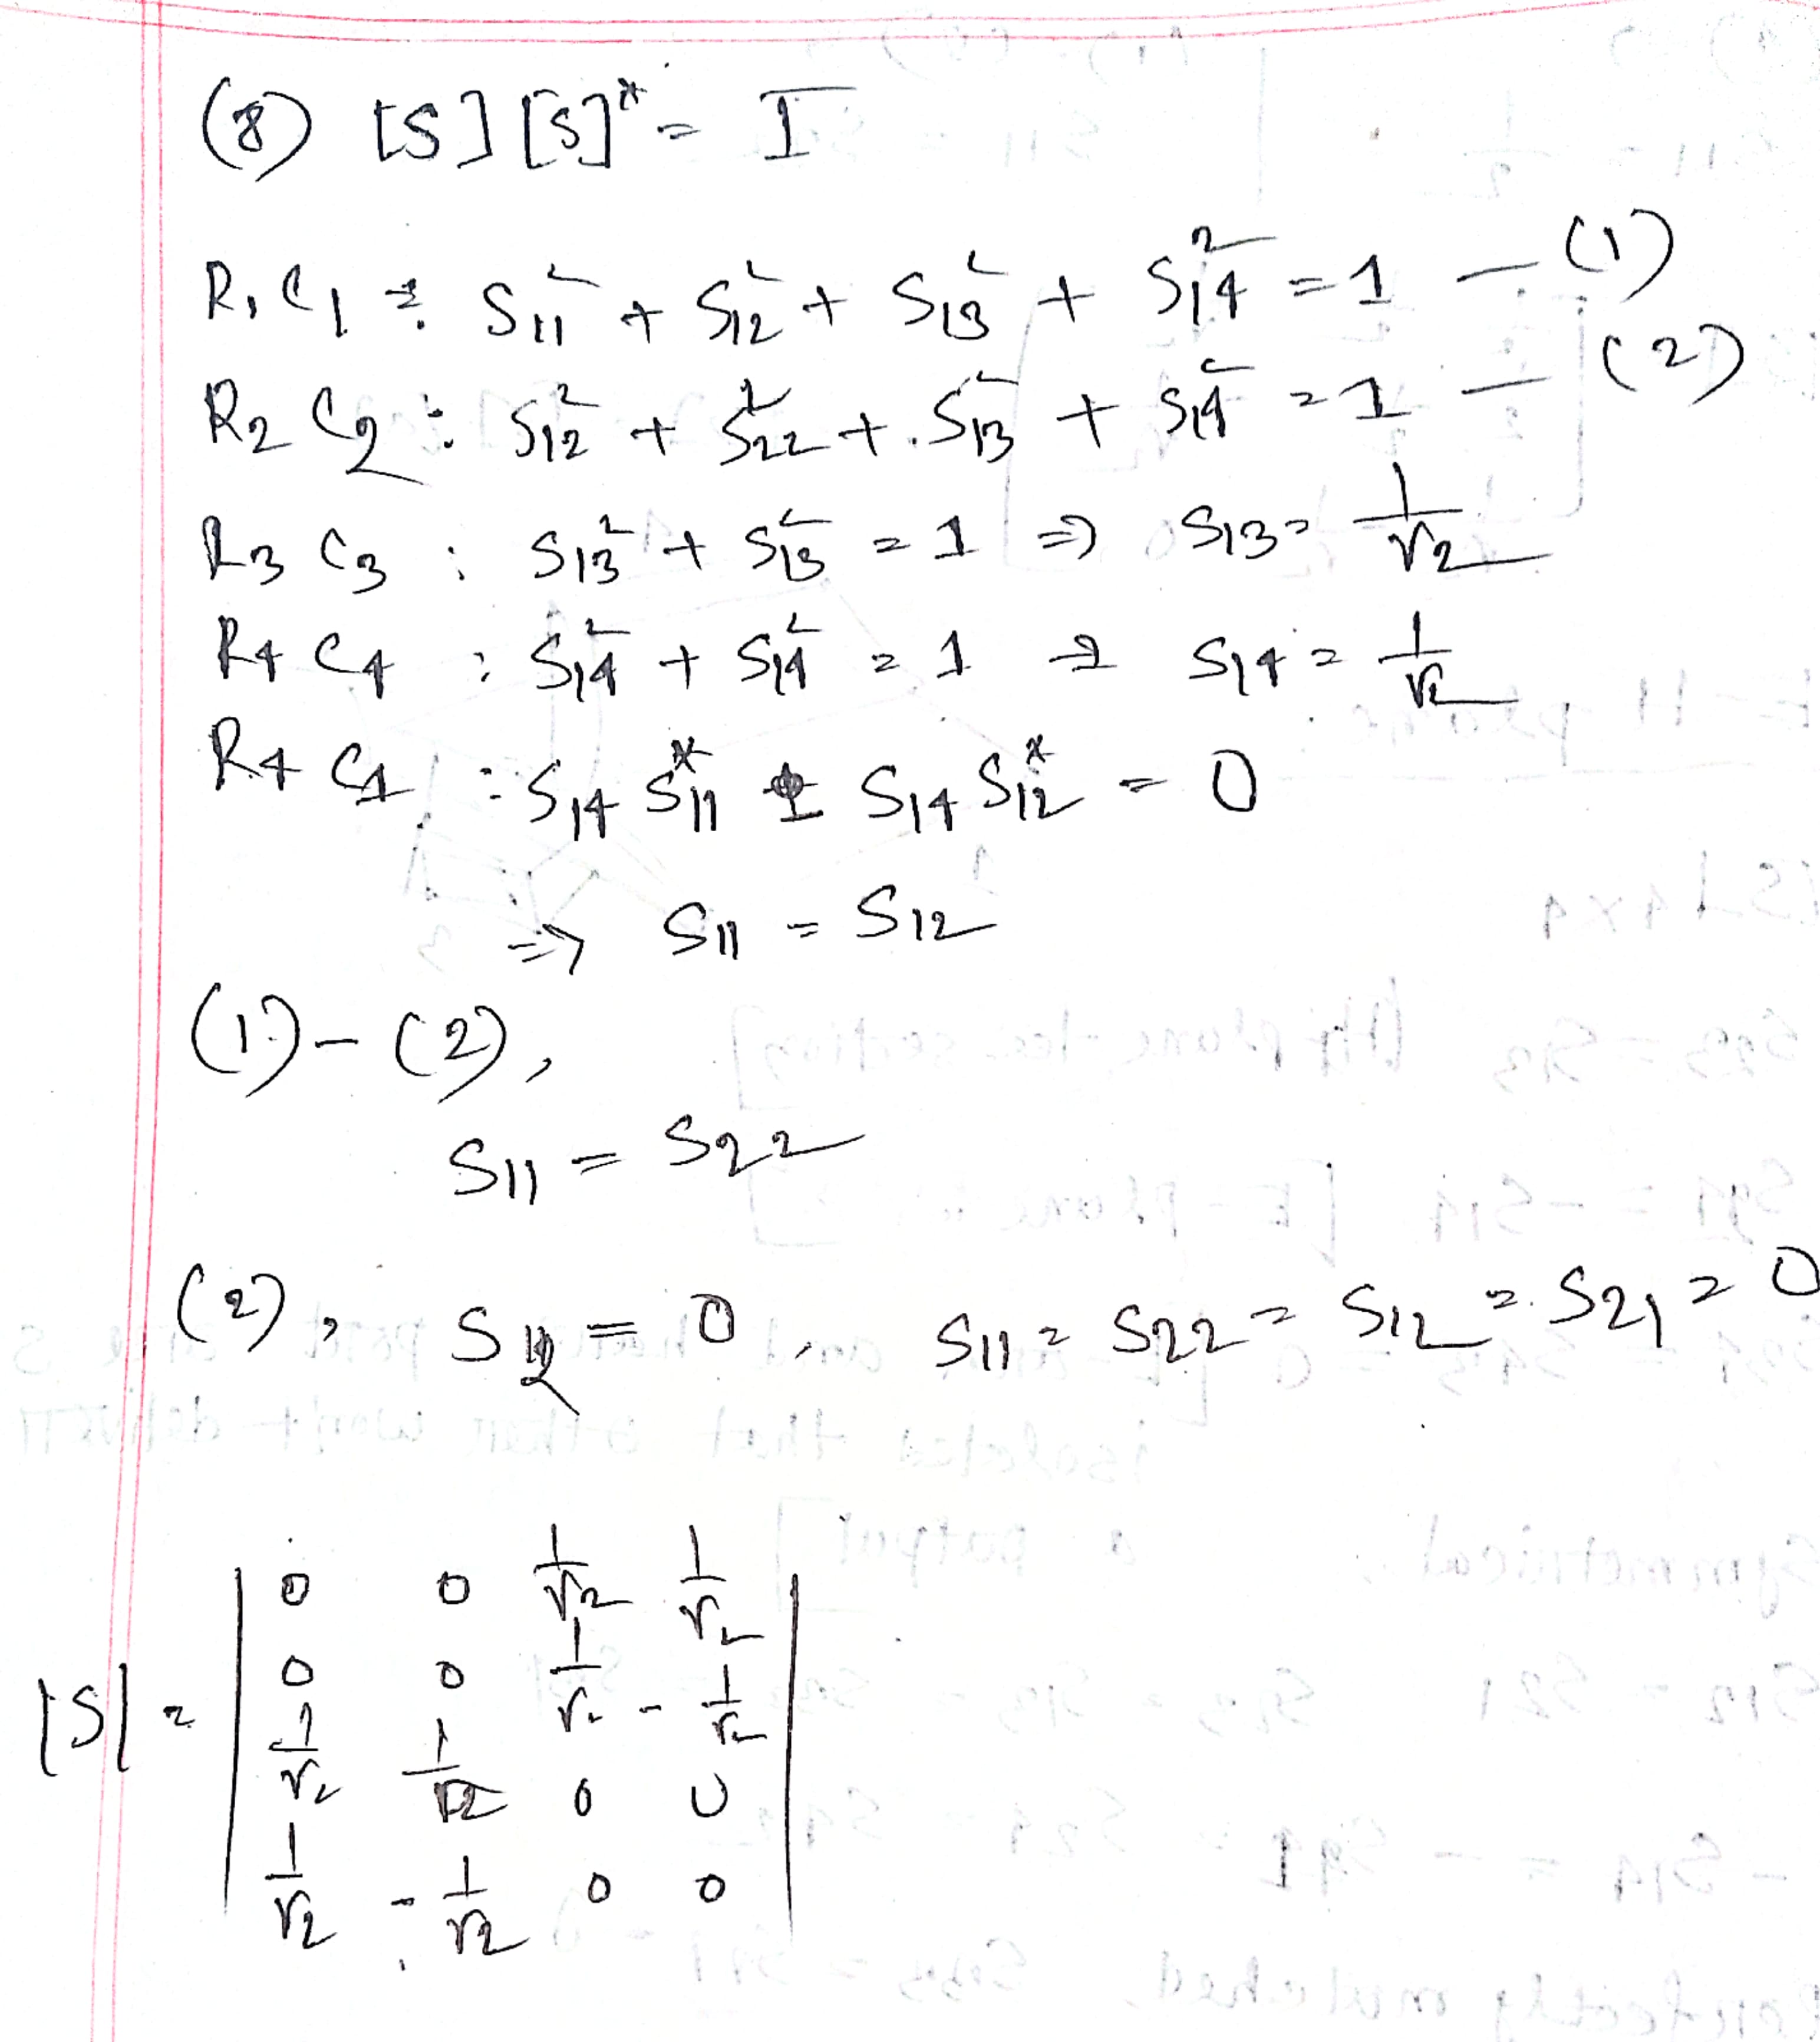 (8) [S] [S]* = I
R1C1 : S11² + S12² + S13² + S14² = 1 — (1)
R2 C2 : S12² + S22² + S13² + S14² = 1 — (2)
R3 C3 : S13² + S13² = 1 ⇒ S13 = 1/√2
R4 C4 : S14² + S14² = 1 ⇒ S14 = 1/√2
R4 C1 : S14 S11* - S14 S12* = 0
⇒ S11 = S12
(1) - (2),
S11 = S22
(2), S12 = 0, S11 = S22 = S12 = S21 = 0
|S| =
0 0 1/√2 1/√2
0 0 1/√2 -1/√2
1/√2 1/√2 0 0
1/√2 -1/√2 0 0